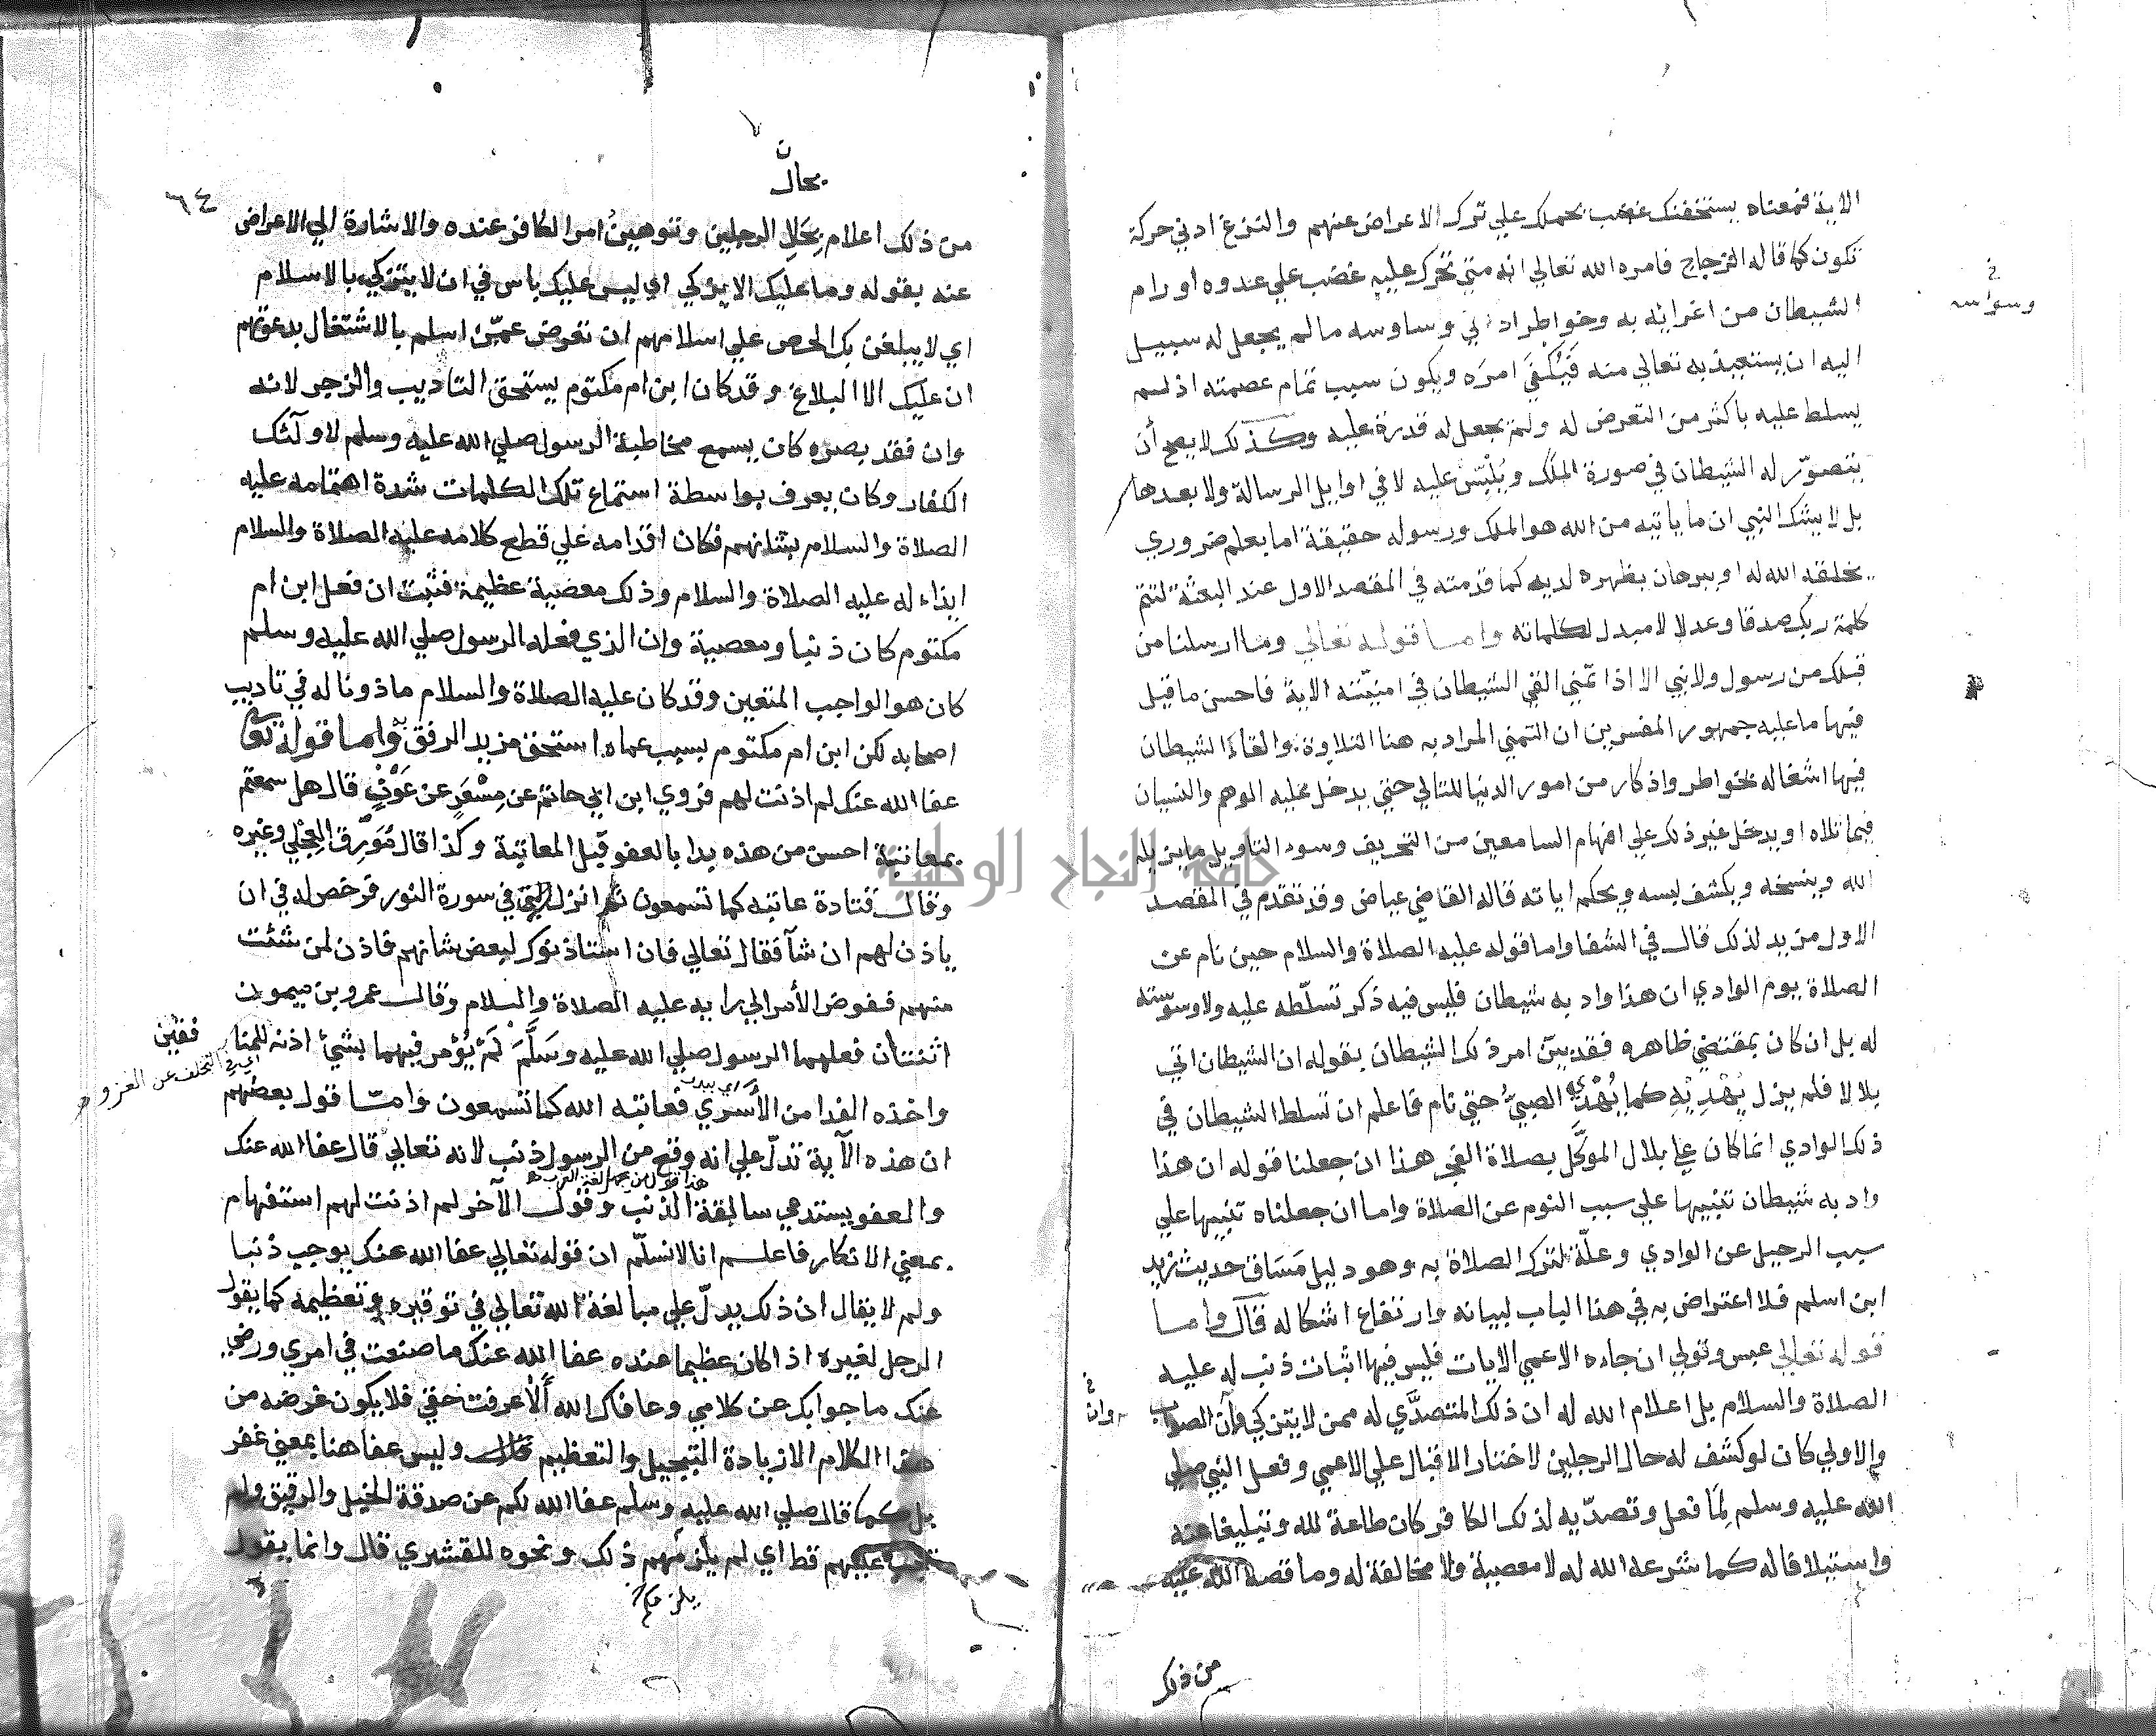 الاية فمعناه يستخفنك غضب يحملك علي ترك الاعراض عنهم والنزغ ادني حركة
تكون كما قاله الزجاج فامره الله تعالي انه متي تحرك عليه غضب علي عدوه او رام
الشيطان من اغرائه به وخواطر ادني وساوسه مالم يجعل له سبيل
خ
وسواسه
اليه ان يستعيذ به تعالي منه فيكفي امره ويكون سبب تمام عصمته اذ لم
يسلط عليه باكثر من التعرض له ولم يجعل له قدرة عليه وكذلك لا يصح أن
يتصوّر له الشيطان في صورة الملك ويُلبّس عليه لا في اوايل الرسالة ولا بعدها
بل لا يشك النبي ان ما ياتيه من الله هو الملك ورسوله حقيقة اما بعلم ضروري
يخلقه الله له او ببرهان يظهره لديه كما قدمته في المقصد الاول عند البعثة لتتم
كلمة ربك صدقا وعدلا لا مبدل لكلماته واما قوله تعالي وما ارسلنا من
قبلك من رسول ولا نبي الا اذا تمني القي الشيطان في امنيّته الاية فاحسن ما قيل
فيها ما عليه جمهور المفسرين ان التمني المراد به هنا التلاوة والقاء الشيطان
فيها اشغاله بخواطر واذكار من امور الدنيا للتالي حتي يدخل عليه الوهم والنسيان
فيما تلاه او يدخل غير ذلك علي افهام السامعين من التحريف وسوء التاويل ما يزيله
الله وينسخه ويكشف لبسه ويحكم اياته قاله القاضي عياض وقد تقدم في المقصد
الاول مزيد لذلك قال في الشفا واما قوله عليه الصلاة والسلام حين نام عن
الصلاة يوم الوادي ان هذا واد به شيطان فليس فيه ذكر تسلّطه عليه ولا وسوسته
له بل ان كان بمقتضي ظاهره فقد بيّن امر ذلك الشيطان بقوله ان الشيطان اتي
بلالا فلم يزل يُهْدِيْهِ كما يُهْدَي الصبيُّ حتي نام فاعلم ان تسلط الشيطان في
ذلك الوادي انما كان علي بلال الموكَّل بصلاة الفجر هذا ان جعلنا قوله ان هذا
واد به شيطان تنبيها علي سبب النوم عن الصلاة واما ان جعلناه تنبيها علي
سبب الرحيل عن الوادي وعلّة لترك الصلاة به وهو دليل مَسَاق حديث زيد
ابن اسلم فلا اعتراض به في هذا الباب لبيانه وارتفاع اشكاله قال واما
قوله تعالي عبس وتولي ان جاءه الاعمي الايات فليس فيها اثبات ذنب له عليه
الصلاة والسلام بل اعلام الله له ان ذلك المتصدَّي له ممن لا يتزكي وأن الصواب
خ
وان
والاولي كان لو كشف له حال الرجلين لاختار الاقبال علي الاعمي وفعل النبي صلي
الله عليه وسلم لِمَا فعل وتصدّيه لذلك الكافر كان طاعة لله وتبليغا عنه
واستيلافا له كما شرعه الله له لا معصية ولا مخالفة له وما قصه الله عليه
من ذلك
٦٤
ن
بحال
من ذلك اعلام بحال الرجلين وتوهين امر الكافر عنده والاشارة الي الاعراض
عنه بقوله وما عليك الا يزكي اي ليس عليك باس في ان لا يتزكي بالاسلام
اي لا يبلغن بك الحرص علي اسلامهم ان تعرض عمّن اسلم بالاشتغال بدعوتهم
ان عليك الا البلاغ وقد كان ابن ام مكتوم يستحق التاديب والزجر لانه
وان فقد بصره كان يسمع مخاطبة الرسول صلي الله عليه وسلم لاولئك
الكفار وكان يعرف بواسطة استماع تلك الكلمات شدة اهتمامه عليه
الصلاة والسلام بشانهم فكان اقدامه علي قطع كلامه عليه الصلاة والسلام
ايذاء له عليه الصلاة والسلام وذلك معصية عظيمة فثبت ان فعل ابن ام
مكتوم كان ذنبا ومعصية وان الذي فعله الرسول صلي الله عليه وسلم
كان هو الواجب المتعين وقد كان عليه الصلاة والسلام ماذونا له في تاديب
اصحابه لكن ابن ام مكتوم بسبب عماه استحق مزيد الرفق واما قوله تعالي
عفا الله عنك لم اذنت لهم فروي ابن ابي حاتم عن مِسْعَرٍ عن عَوْنٍ قال هل سمعتم
بمعاتبة احسن من هذه بدا بالعفو قبل المعاتبة وكذا قال مُوَرِّق العِجْلي وغيره
وقال قتادة عاتبه كما تسمعون ثم انزل التي في سورة النور فرخص له في ان
ياذن لهم ان شآ فقال تعالي فان استاذنوك لبعض شانهم فاذن لمن شئت
منهم ففوض الأمر الي رايه عليه الصلاة والسلام وقال عمرو بن ميمون
اثنتان فعلهما الرسول صلي الله عليه وسَلَّمَ لَمْ يُؤمر فيهما بشيئ اذنه للمنا
فقين
اي في التخلف عن الغزو
اي ببدر
واخذه الفدا من الأَسْرَي فعاتبه الله كما تسمعون وامّا قول بعضهم
ان هذه الآية تدلّ علي انه وقع من الرسول ذنب لانه تعالي قال عفا الله عنك
هذا قول من يجهل لغة العرب
والعفو يستدعي سالفة الذنب وقول الآخر لم اذنت لهم استفهام
بمعني الانكار فاعلم انا لا نسلّم ان قوله تعالي عفا الله عنك يوجب ذنبا
ولم لا يقال ان ذلك يدلّ علي مبالغة الله تعالي في توقيره وتعظيمه كما يقول
الرجل لغيره اذا كان عظيما عنده عفا الله عنك ما صنعت في امري ورضي
عنك ما جوابك عن كلامي وعافاك الله ألاعرفت حقي فلا يكون غرضه من
هذا الكلام الا زيادة التبجيل والتعظيم قال وليس عفا هنا بمعني غفر
بل كما قال صلي الله عليه وسلم عفا الله لكم عن صدقة الخيل والرقيق ولم
تجب عليهم قط اي لم يلزمهم ذلك ونحوه للقشيري قال وانما يقول
يلزمكم
جامعة النجاح الوطنية